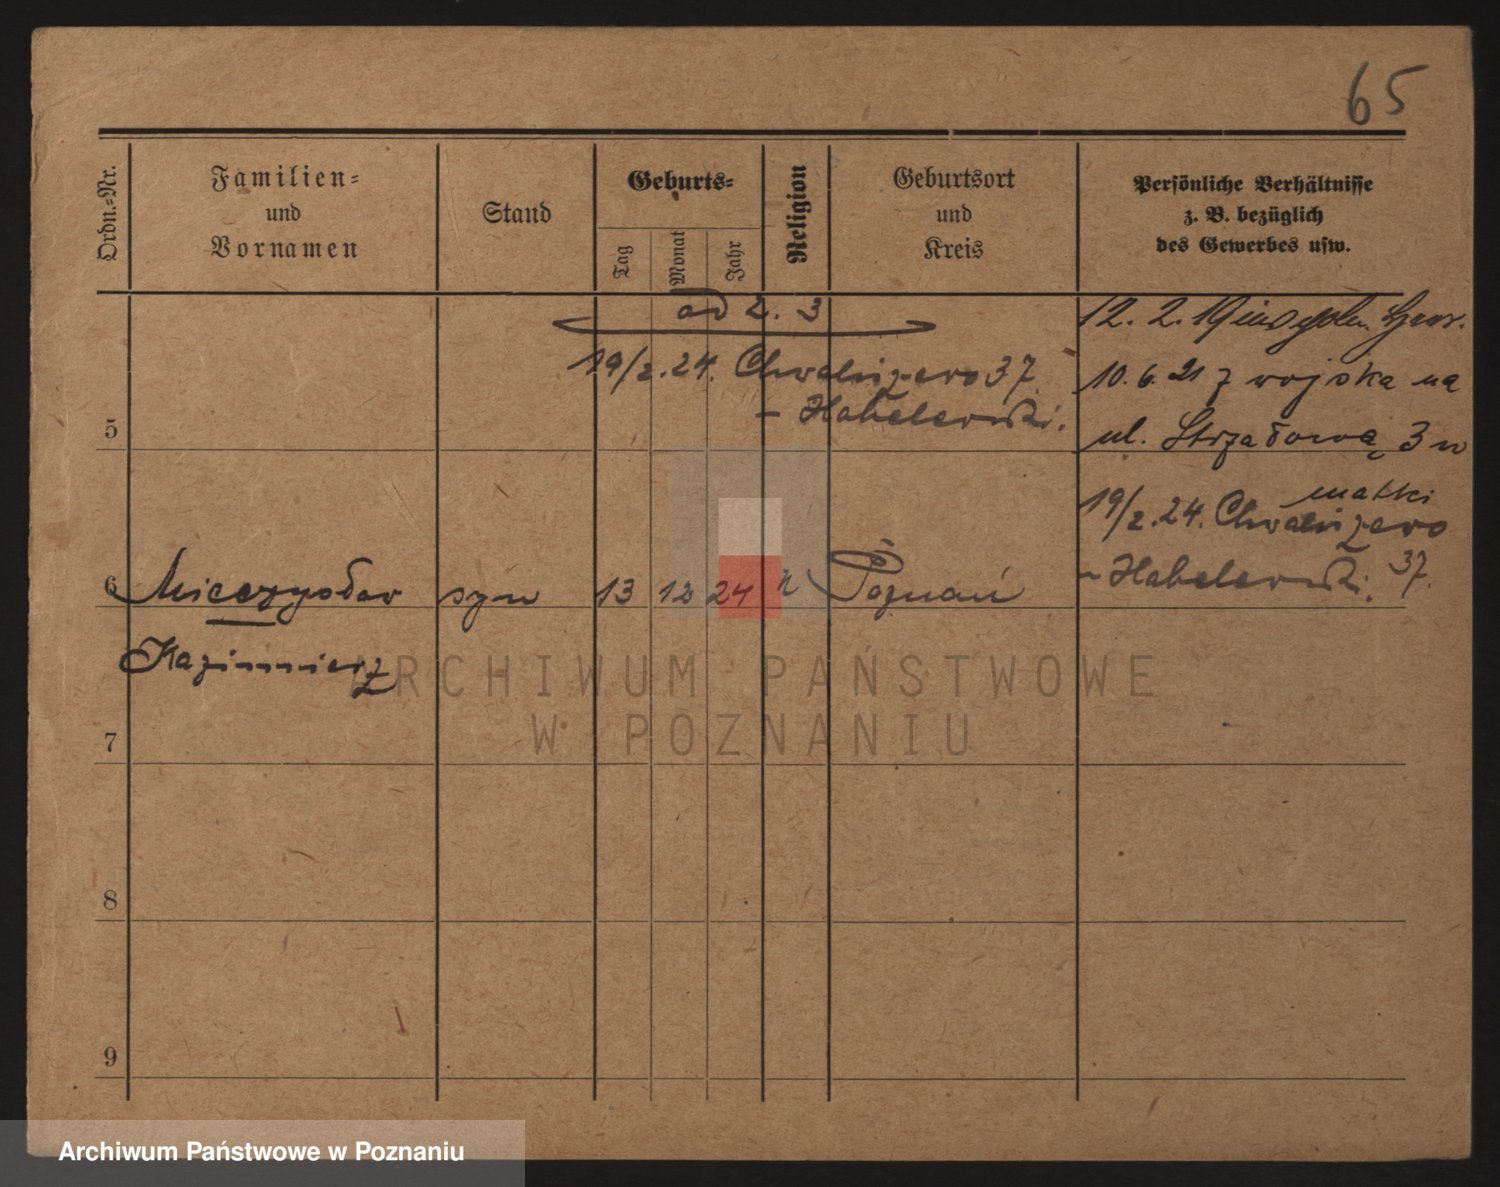 65
Ordn.-Nr.
Familien-
und
Vornamen
Stand
Geburts-
Tag
Monat
Jahr
Religion
Geburtsort
und
Kreis
Persönliche Verhältnisse
z. B. bezüglich
des Gewerbes usw.
od 2. 3
19/2.24. Chwaliszewo 37
5
12. 2. 19
10. 6. 21 z wojska na
ul. Strzałową 3 w
matki
19/2.24. Chwaliszewo
37.
6 Mieczysław syn 13 12 24 k Poznań
Kazimierz
ARCHIWUM PAŃSTWOWE
W POZNANIU
7
8
9
Archiwum Państwowe w Poznaniu